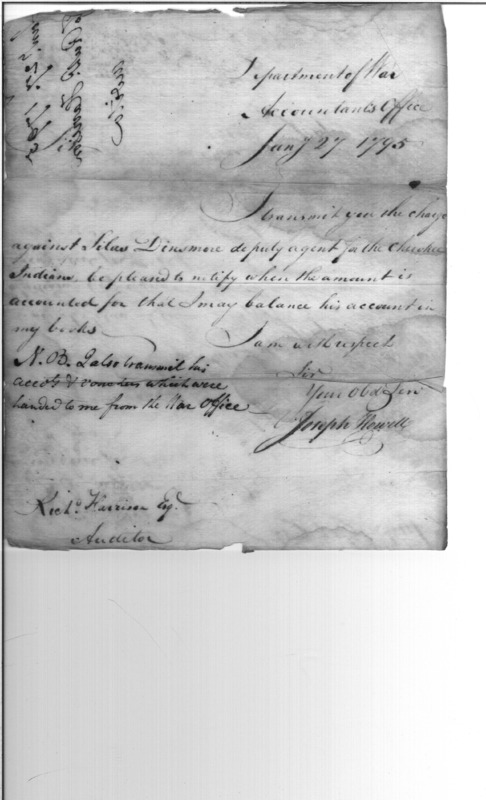 Department of War
Accountants Office
Jany 27 1795
Sir
I transmit you the charge
against Silas Dinsmore deputy agent for the Cherokee
Indians, be pleased to notify when the amount is
accounted for that I may balance his account in
my books
I am with respect
Sir
Your Obd Serv
Joseph Howell
N.B. I also transmit his
accots & vouchers which were
handed to me from the War Office
Richd Harrison Esqr
Auditor